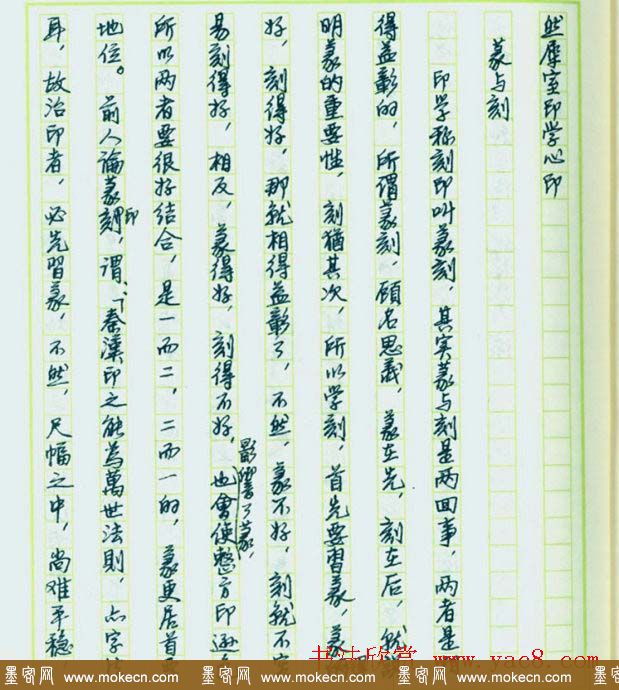 然犀室印学心印
篆与刻
印学称刻印叫篆刻，其实篆与刻是两回事，两者是
得益彰的，所谓篆刻，顾名思义，篆在先，刻在后，就
明篆的重要性，刻犹其次，所以学刻，首先要習篆，篆
好，刻得好，那就相得益彰了，不然，篆不好，刻就不
易刻得好，相反，篆得好，刻得不好，影响了篆，也會使整方印逊
所以两者要很好结合，是一而二，二而一的，篆更居首
地位。前人論篆刻印，谓：「秦漢印之能為萬世法則，点字
耳，故治印者，必先習篆，不然，尺幅之中，尚难平稳，
书法欣赏 www.yac8.com
墨客网 www.mokecn.com 墨客网 www.mokecn.com 墨客网 www.mokecn.com